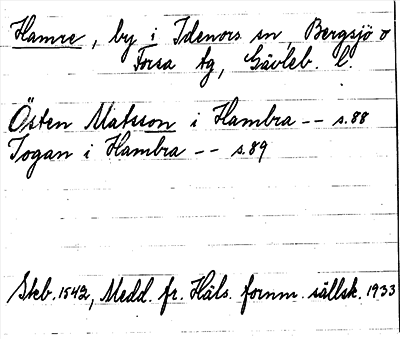 Hamre, by i Idenors sn, Bergsjö o
Forsa tg, Gävleb. l.
Östen Matsson i Hambra -- s.88
Jogan i Hambra -- s.89
Skb. 1542, Medd. fr. Häls. fornm. sällsk. 1933